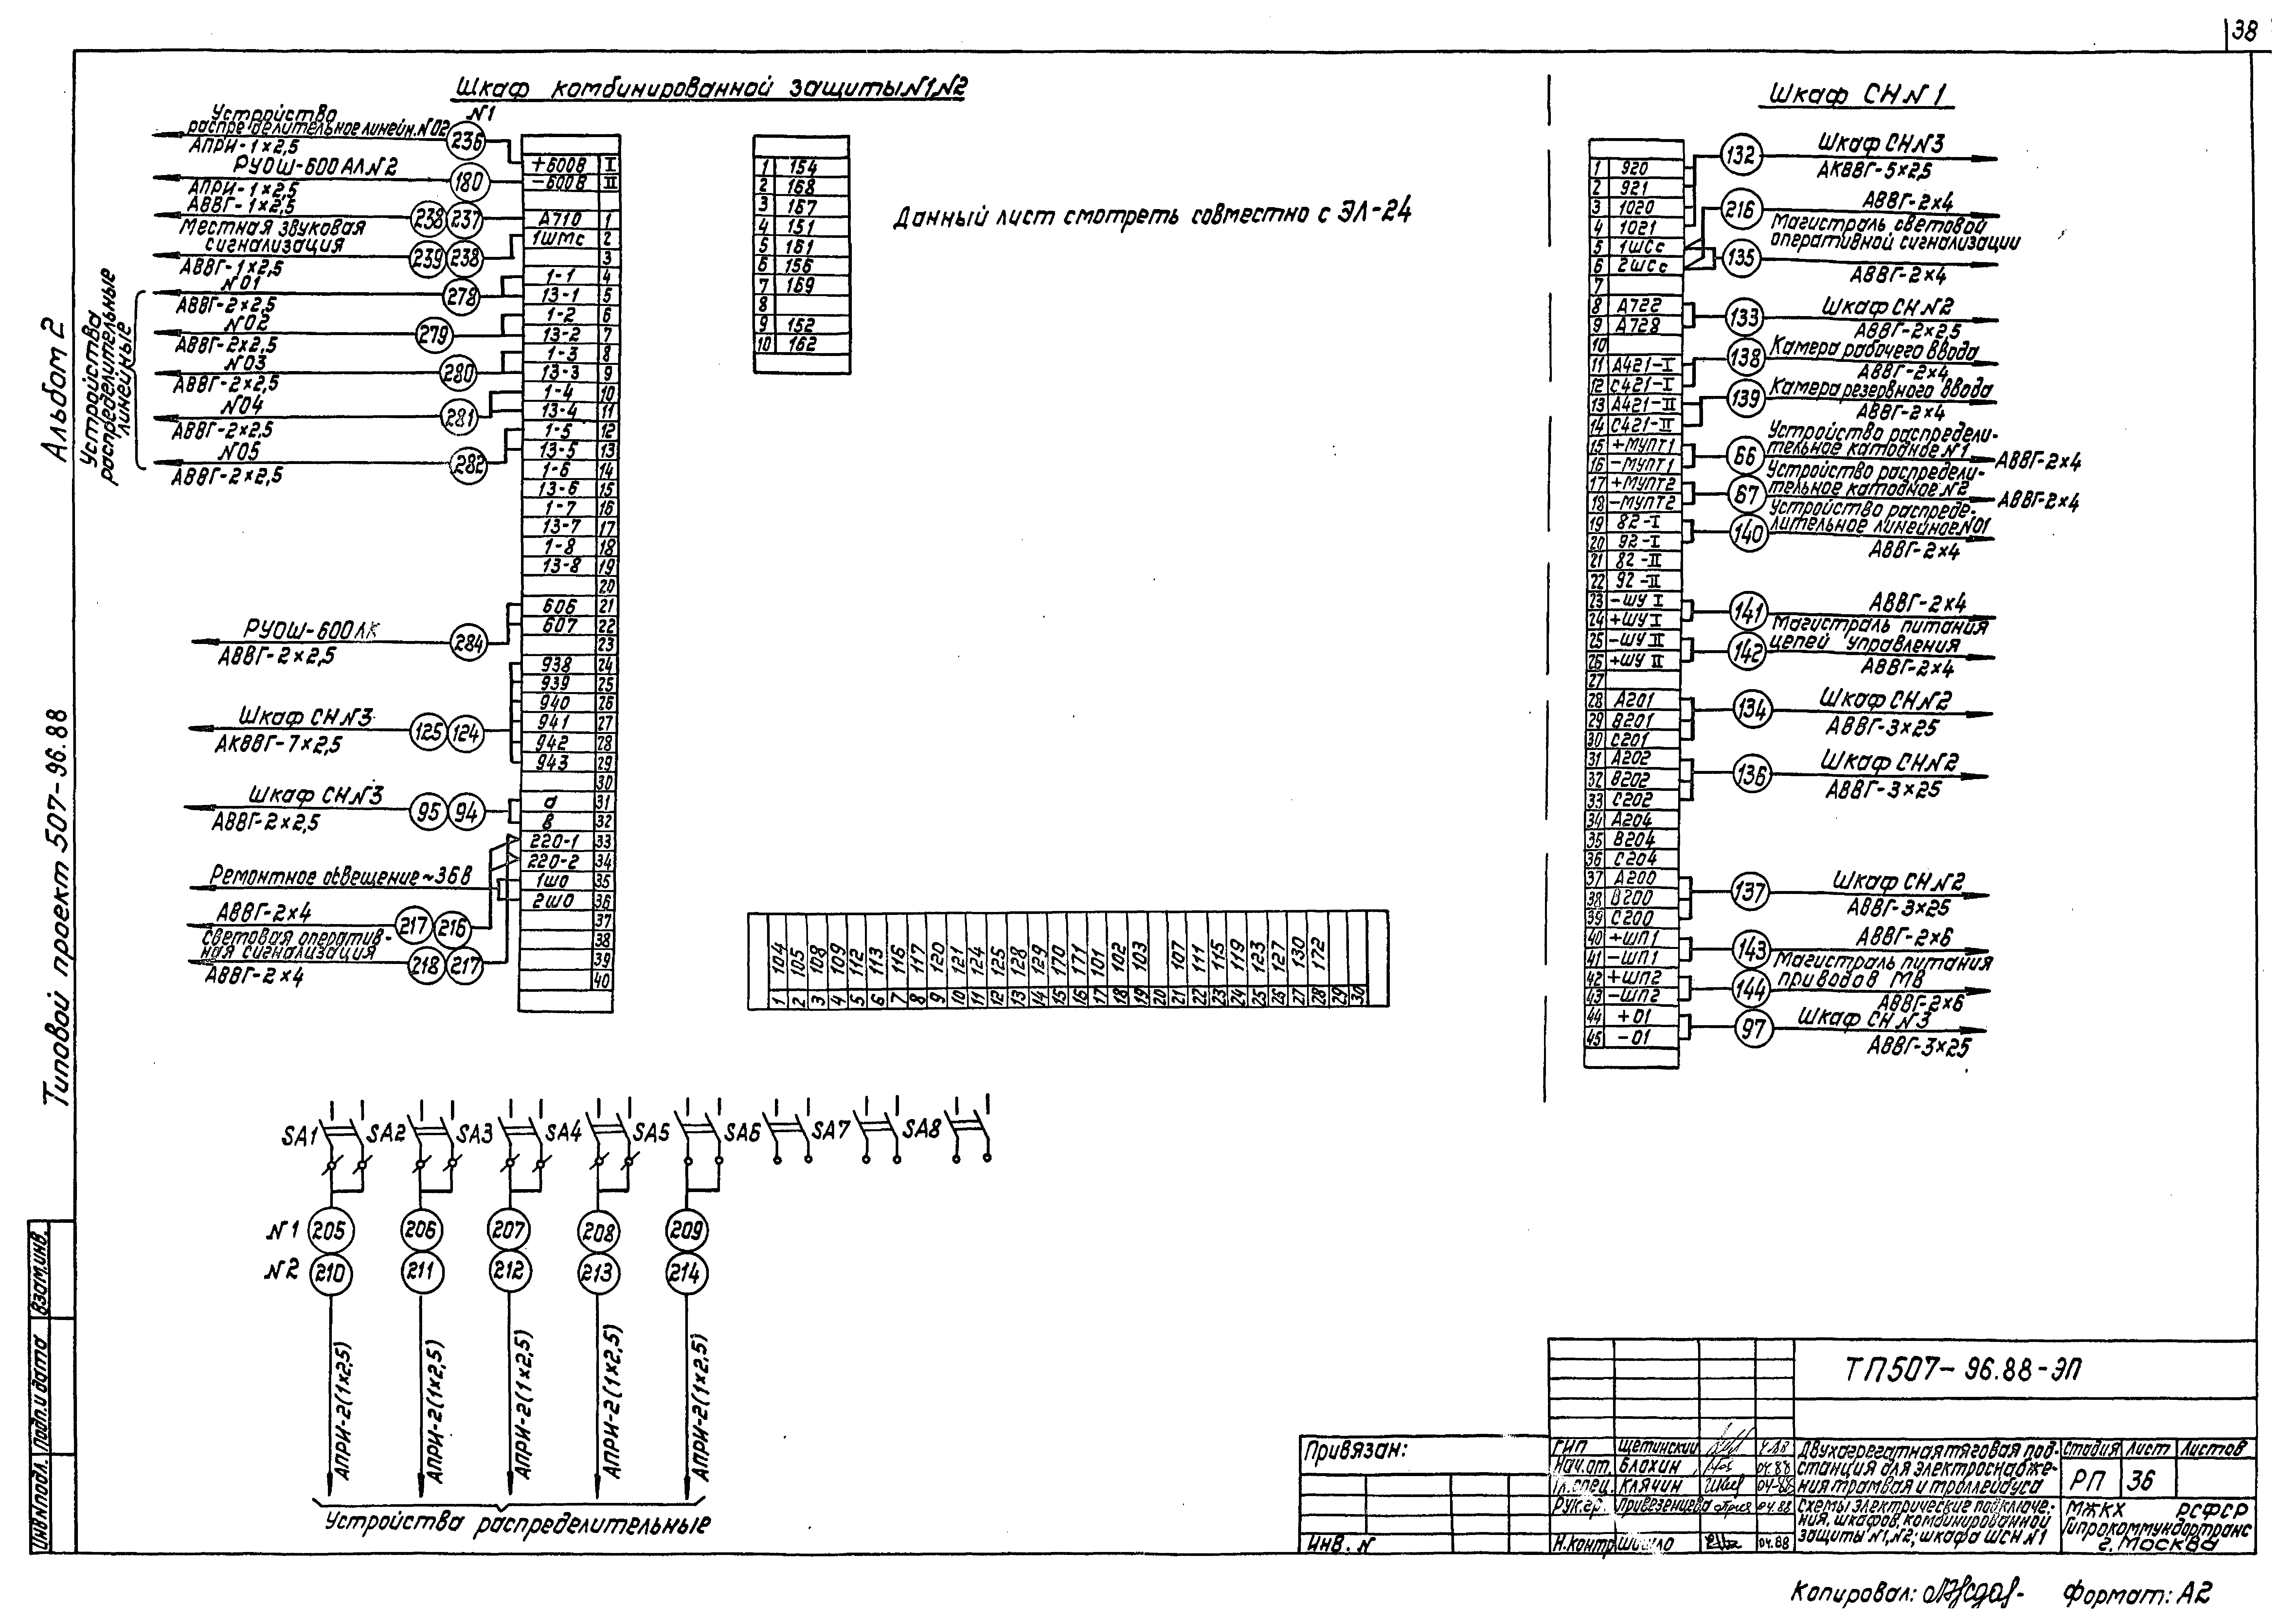 38
Шкаф комбинированной защиты N1, N2
Шкаф СН N 1
Альбом 2
Типовой проект 507-96.88
N1
Устройство
распределительное линейн. N02
236
АПРИ-1×2,5
РУОШ-600 АЛ N2
180
АПРИ-1×2,5
АВВГ-1×2,5
238 237
Местная звуковая
сигнализация
239 238
АВВГ-1×2,5
Устройства
распределительные
линейные
N01
278
АВВГ-2×2,5
N02
279
АВВГ-2×2,5
N03
280
АВВГ-2×2,5
N04
281
АВВГ-2×2,5
N05
282
АВВГ-2×2,5
РУОШ-600 ЛК
284
АВВГ-2×2,5
Шкаф СН N3
125 124
АКВВГ-7×2,5
Шкаф СН N3
95 94
АВВГ-2×2,5
Ремонтное освещение ~36В
АВВГ-2×4
217 216
Световая оператив-
ная сигнализация
218 217
АВВГ-2×4
+600В I
-600В II
А710 1
1ШМС 2
3
1-1 4
13-1 5
1-2 6
13-2 7
1-3 8
13-3 9
1-4 10
13-4 11
1-5 12
13-5 13
1-6 14
13-6 15
1-7 16
13-7 17
1-8 18
13-8 19
20
606 21
607 22
23
938 24
939 25
940 26
941 27
942 28
943 29
30
а 31
в 32
220-1 33
220-2 34
1ШО 35
2ШО 36
37
38
39
40
1 154
2 168
3 167
4 151
5 161
6 156
7 169
8
9 152
10 162
Данный лист смотреть совместно с ЭЛ-24
104 105 108 109 112 113 116 117 120 121 124 125 128 129 170 171 101 102 103 107 111 115 119 123 127 130 172
1 2 3 4 5 6 7 8 9 10 11 12 13 14 15 16 17 18 19 20 21 22 23 24 25 26 27 28 29 30
1 920
2 921
3 1020
4 1021
5 1ШСС
6 2ШСС
7
8 А722
9 А728
10
11 А421-I
12 С421-I
13 А421-II
14 С421-II
15 +МУПТ1
16 -МУПТ1
17 +МУПТ2
18 -МУПТ2
19 82-I
20 92-I
21 82-II
22 92-II
23 -ШУ I
24 +ШУ I
25 -ШУ II
26 +ШУ II
27
28 А201
29 В201
30 С201
31 А202
32 В202
33 С202
34 А204
35 В204
36 С204
37 А200
38 В200
39 С200
40 +ШП1
41 -ШП1
42 +ШП2
43 -ШП2
44 +01
45 -01
132
Шкаф СН N3
АКВВГ-5×2,5
216
АВВГ-2×4
Магистраль световой
оперативной сигнализации
135
АВВГ-2×4
133
Шкаф СН N2
АВВГ-2×2,5
138
Камера рабочего ввода
АВВГ-2×4
139
Камера резервного ввода
АВВГ-2×4
66
Устройство распредели-
тельное катодное N1
АВВГ-2×4
67
Устройство распредели-
тельное катодное N2
АВВГ-2×4
140
Устройство распреде-
лительное линейное N01
АВВГ-2×4
141
АВВГ-2×4
Магистраль питания
цепей управления
142
АВВГ-2×4
134
Шкаф СН N2
АВВГ-3×25
136
Шкаф СН N2
АВВГ-3×25
137
Шкаф СН N2
АВВГ-3×25
143
АВВГ-2×6
Магистраль питания
приводов МВ
144
АВВГ-2×6
97
Шкаф СН N3
АВВГ-3×25
SA1 SA2 SA3 SA4 SA5 SA6 SA7 SA8
N1 205 206 207 208 209
N2 210 211 212 213 214
АПРИ-2(1×2,5) АПРИ-2(1×2,5) АПРИ-2(1×2,5) АПРИ-2(1×2,5) АПРИ-2(1×2,5)
Устройства распределительные
Инв N подл. Подп. и дата Взам. инв.
Привязан:
Инв. N
ТП507-96.88-ЭП
ГИП Щетинский
Нач. от. Блохин 04.88
Гл. спец. Клячин 04-88
Рук. гр. Привезенцева 04.88
Н. контр. 04.88
Двухагрегатная тяговая под-
станция для электроснабже-
ния трамвая и троллейбуса
Стадия Лист Листов
РП 36
Схемы электрические подключе-
ния, шкафов, комбинированной
защиты N1, N2; шкафа ШСН N1
МЖКХ РСФСР
Гипрокоммундортранс
г. Москва
Копировал: Формат: А2